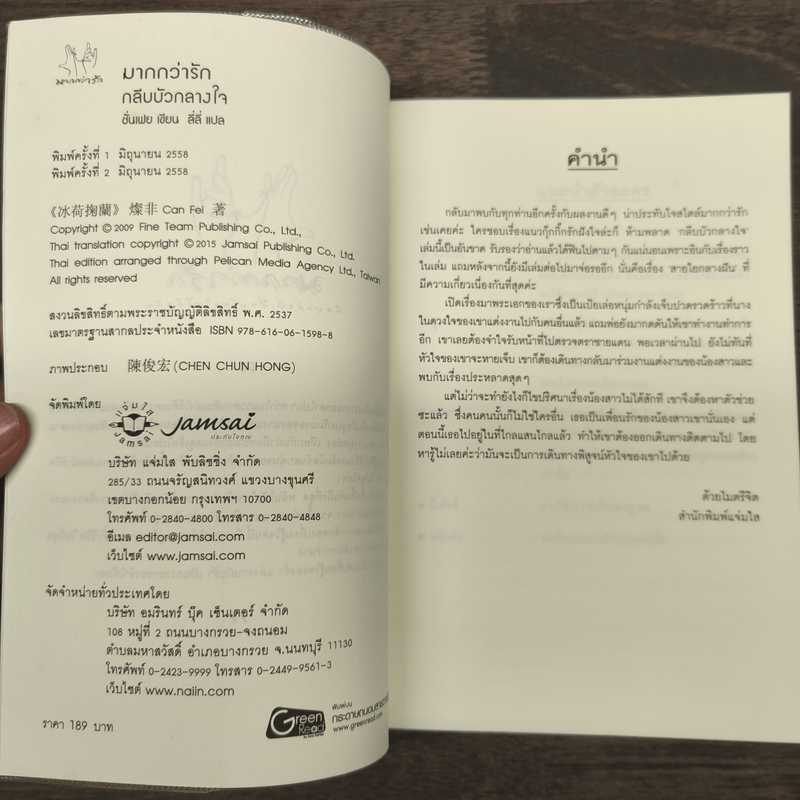 มากกว่ารัก
มากกว่ารัก
กลีบบัวกลางใจ
ชั่นเฟย เขียน ลี่ลี่ แปล
พิมพ์ครั้งที่ 1 มิถุนายน 2558
พิมพ์ครั้งที่ 2 มิถุนายน 2558
《冰荷掬蘭》 燦非 Can Fei 著
Copyright © 2009 Fine Team Publishing Co., Ltd.,
Thai translation copyright © 2015 Jamsai Publishing Co., Ltd.
Thai edition arranged through Pelican Media Agency Ltd., Taiwan
All rights reserved
สงวนลิขสิทธิ์ตามพระราชบัญญัติลิขสิทธิ์ พ.ศ. 2537
เลขมาตรฐานสากลประจำหนังสือ ISBN 978-616-06-1598-8
ภาพประกอบ 陳俊宏 (CHEN CHUN HONG)
จัดพิมพ์โดย
แจ่มใส
Jamsai
Jamsai
ประทับใจคุณ
บริษัท แจ่มใส พับลิชชิ่ง จำกัด
285/33 ถนนจรัญสนิทวงศ์ แขวงบางขุนศรี
เขตบางกอกน้อย กรุงเทพฯ 10700
โทรศัพท์ 0-2840-4800 โทรสาร 0-2840-4848
อีเมล editor@jamsai.com
เว็บไซต์ www.jamsai.com
จัดจำหน่ายทั่วประเทศโดย
บริษัท อมรินทร์ บุ๊ค เซ็นเตอร์ จำกัด
108 หมู่ที่ 2 ถนนบางกรวย-จงถนอม
ตำบลมหาสวัสดิ์ อำเภอบางกรวย จ.นนทบุรี 11130
โทรศัพท์ 0-2423-9999 โทรสาร 0-2449-9561-3
เว็บไซต์ www.naiin.com
ราคา 189 บาท
Green
Read
พิมพ์บน
กระดาษถนอมสายตา
www.greenread.com
คำนำ
กลับมาพบกับทุกท่านอีกครั้งกับผลงานดีๆ น่าประทับใจสไตล์มากกว่ารัก
เช่นเคยค่ะ ใครชอบเรื่องแนวกุ๊กกิ๊กรักฝังใจล่ะก็ ห้ามพลาด 'กลีบบัวกลางใจ'
เล่มนี้เป็นอันขาด รับรองว่าอ่านแล้วได้ฟินไปตามๆ กันแน่นอนเพราะอินกับเรื่องราว
ในเล่ม แถมหลังจากนี้ยังมีเล่มต่อไปมาจ่อรออีก นั่นคือเรื่อง 'สายใยกลางฝัน' ที่
มีความเกี่ยวเนื่องกันที่สุดค่ะ
เปิดเรื่องมาพระเอกของเราซึ่งเป็นเป้ยเล่อหนุ่มกำลังเจ็บปวดรวดร้าวที่นาง
ในดวงใจของเขาแต่งงานไปกับคนอื่นแล้ว แถมพ่อยังมากดดันให้เขาทำงานทำการ
อีก เขาเลยต้องจำใจรับหน้าที่ไปตรวจตราชายแดน พอเวลาผ่านไป ยังไม่ทันที่
หัวใจของเขาจะหายเจ็บ เขาก็ต้องเดินทางกลับมาร่วมงานแต่งงานของน้องสาวและ
พบกับเรื่องประหลาดสุดๆ
แต่ไม่ว่าจะทำยังไงก็ไขปริศนาเรื่องน้องสาวไม่ได้สักที เขาจึงต้องหาตัวช่วย
ซะแล้ว ซึ่งคนคนนั้นก็ไม่ใช่ใครอื่น เธอเป็นเพื่อนรักของน้องสาวเขานั่นเอง แต่
ตอนนี้เธอไปอยู่ในที่ไกลแสนไกลแล้ว ทำให้เขาต้องออกเดินทางติดตามไป โดย
หารู้ไม่เลยค่ะว่ามันจะเป็นการเดินทางพิสูจน์หัวใจของเขาไปด้วย
ด้วยไมตรีจิต
สำนักพิมพ์แจ่มใส